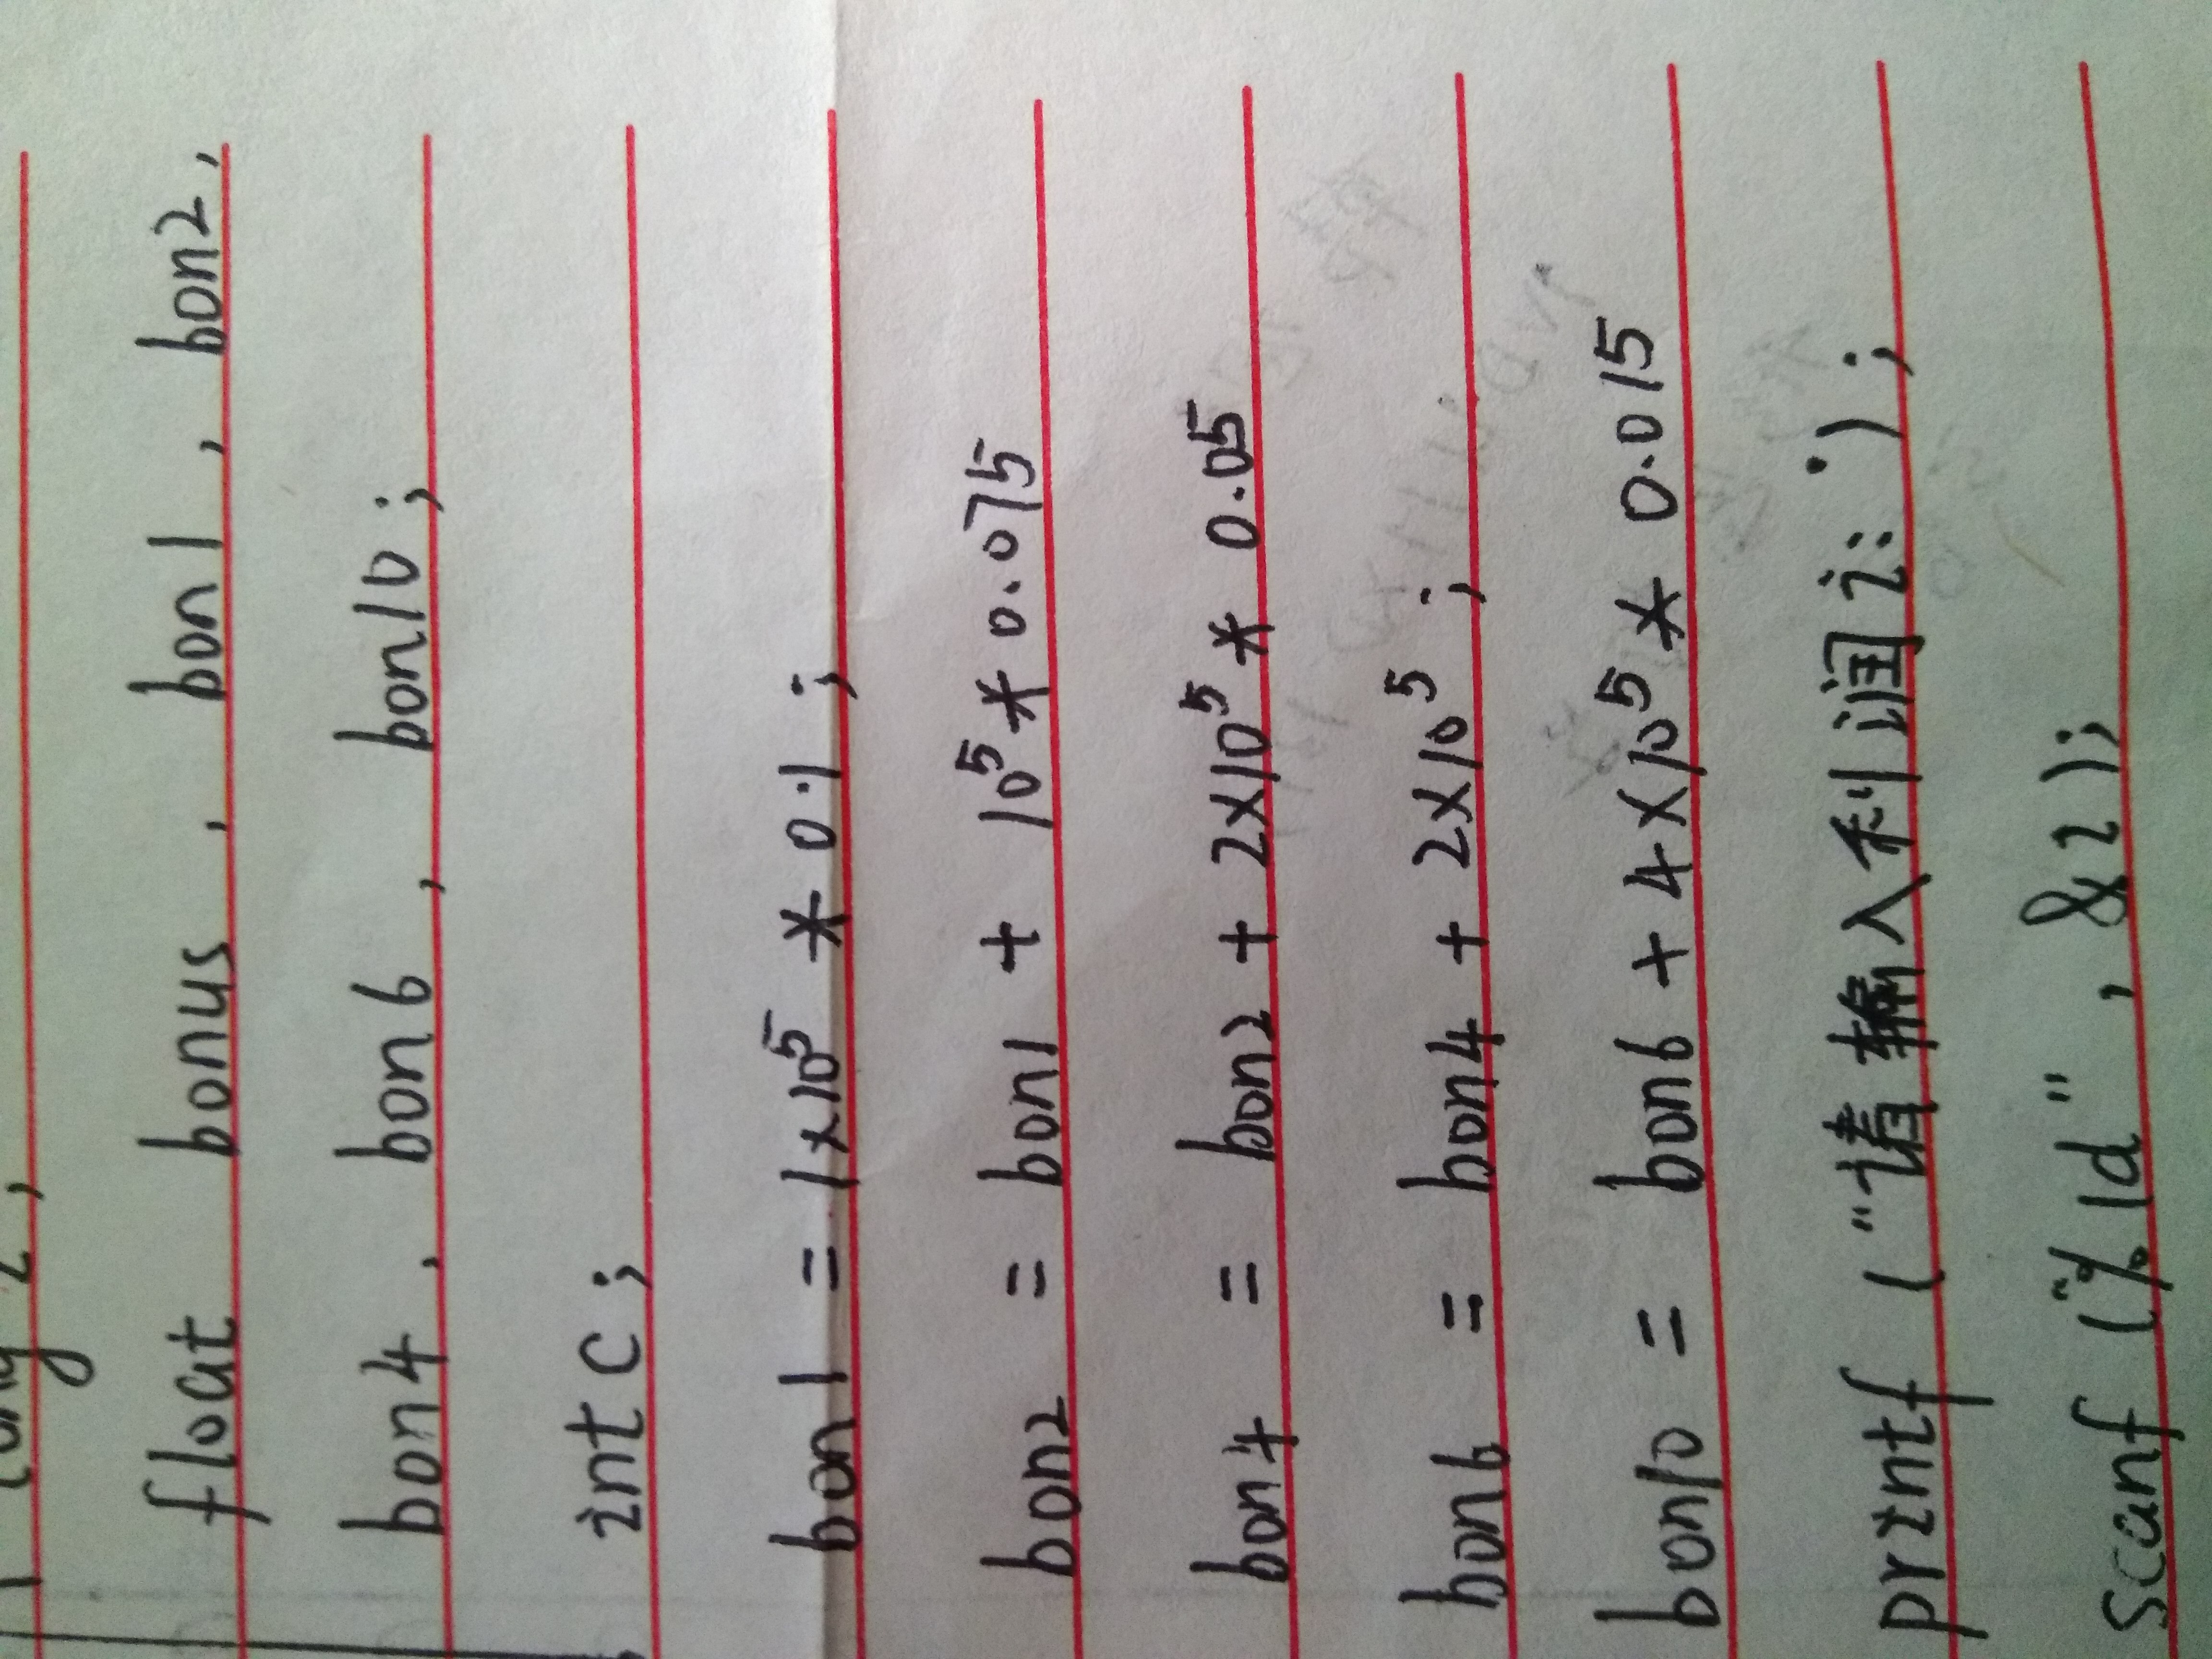 long i;
float bonus , bon1 , bon2,
bon4 , bon6 , bon10 ;
int c ;
bon1 = 1×10⁵ * 0.1 ;
bon2 = bon1 + 10⁵ * 0.075
bon4 = bon2 + 2×10⁵ * 0.05
bon6 = bon4 + 2×10⁵ ;
bon10 = bon6 + 4×10⁵ * 0.015
printf ("请输入利润i: ") ;
scanf ("%ld" , &i );